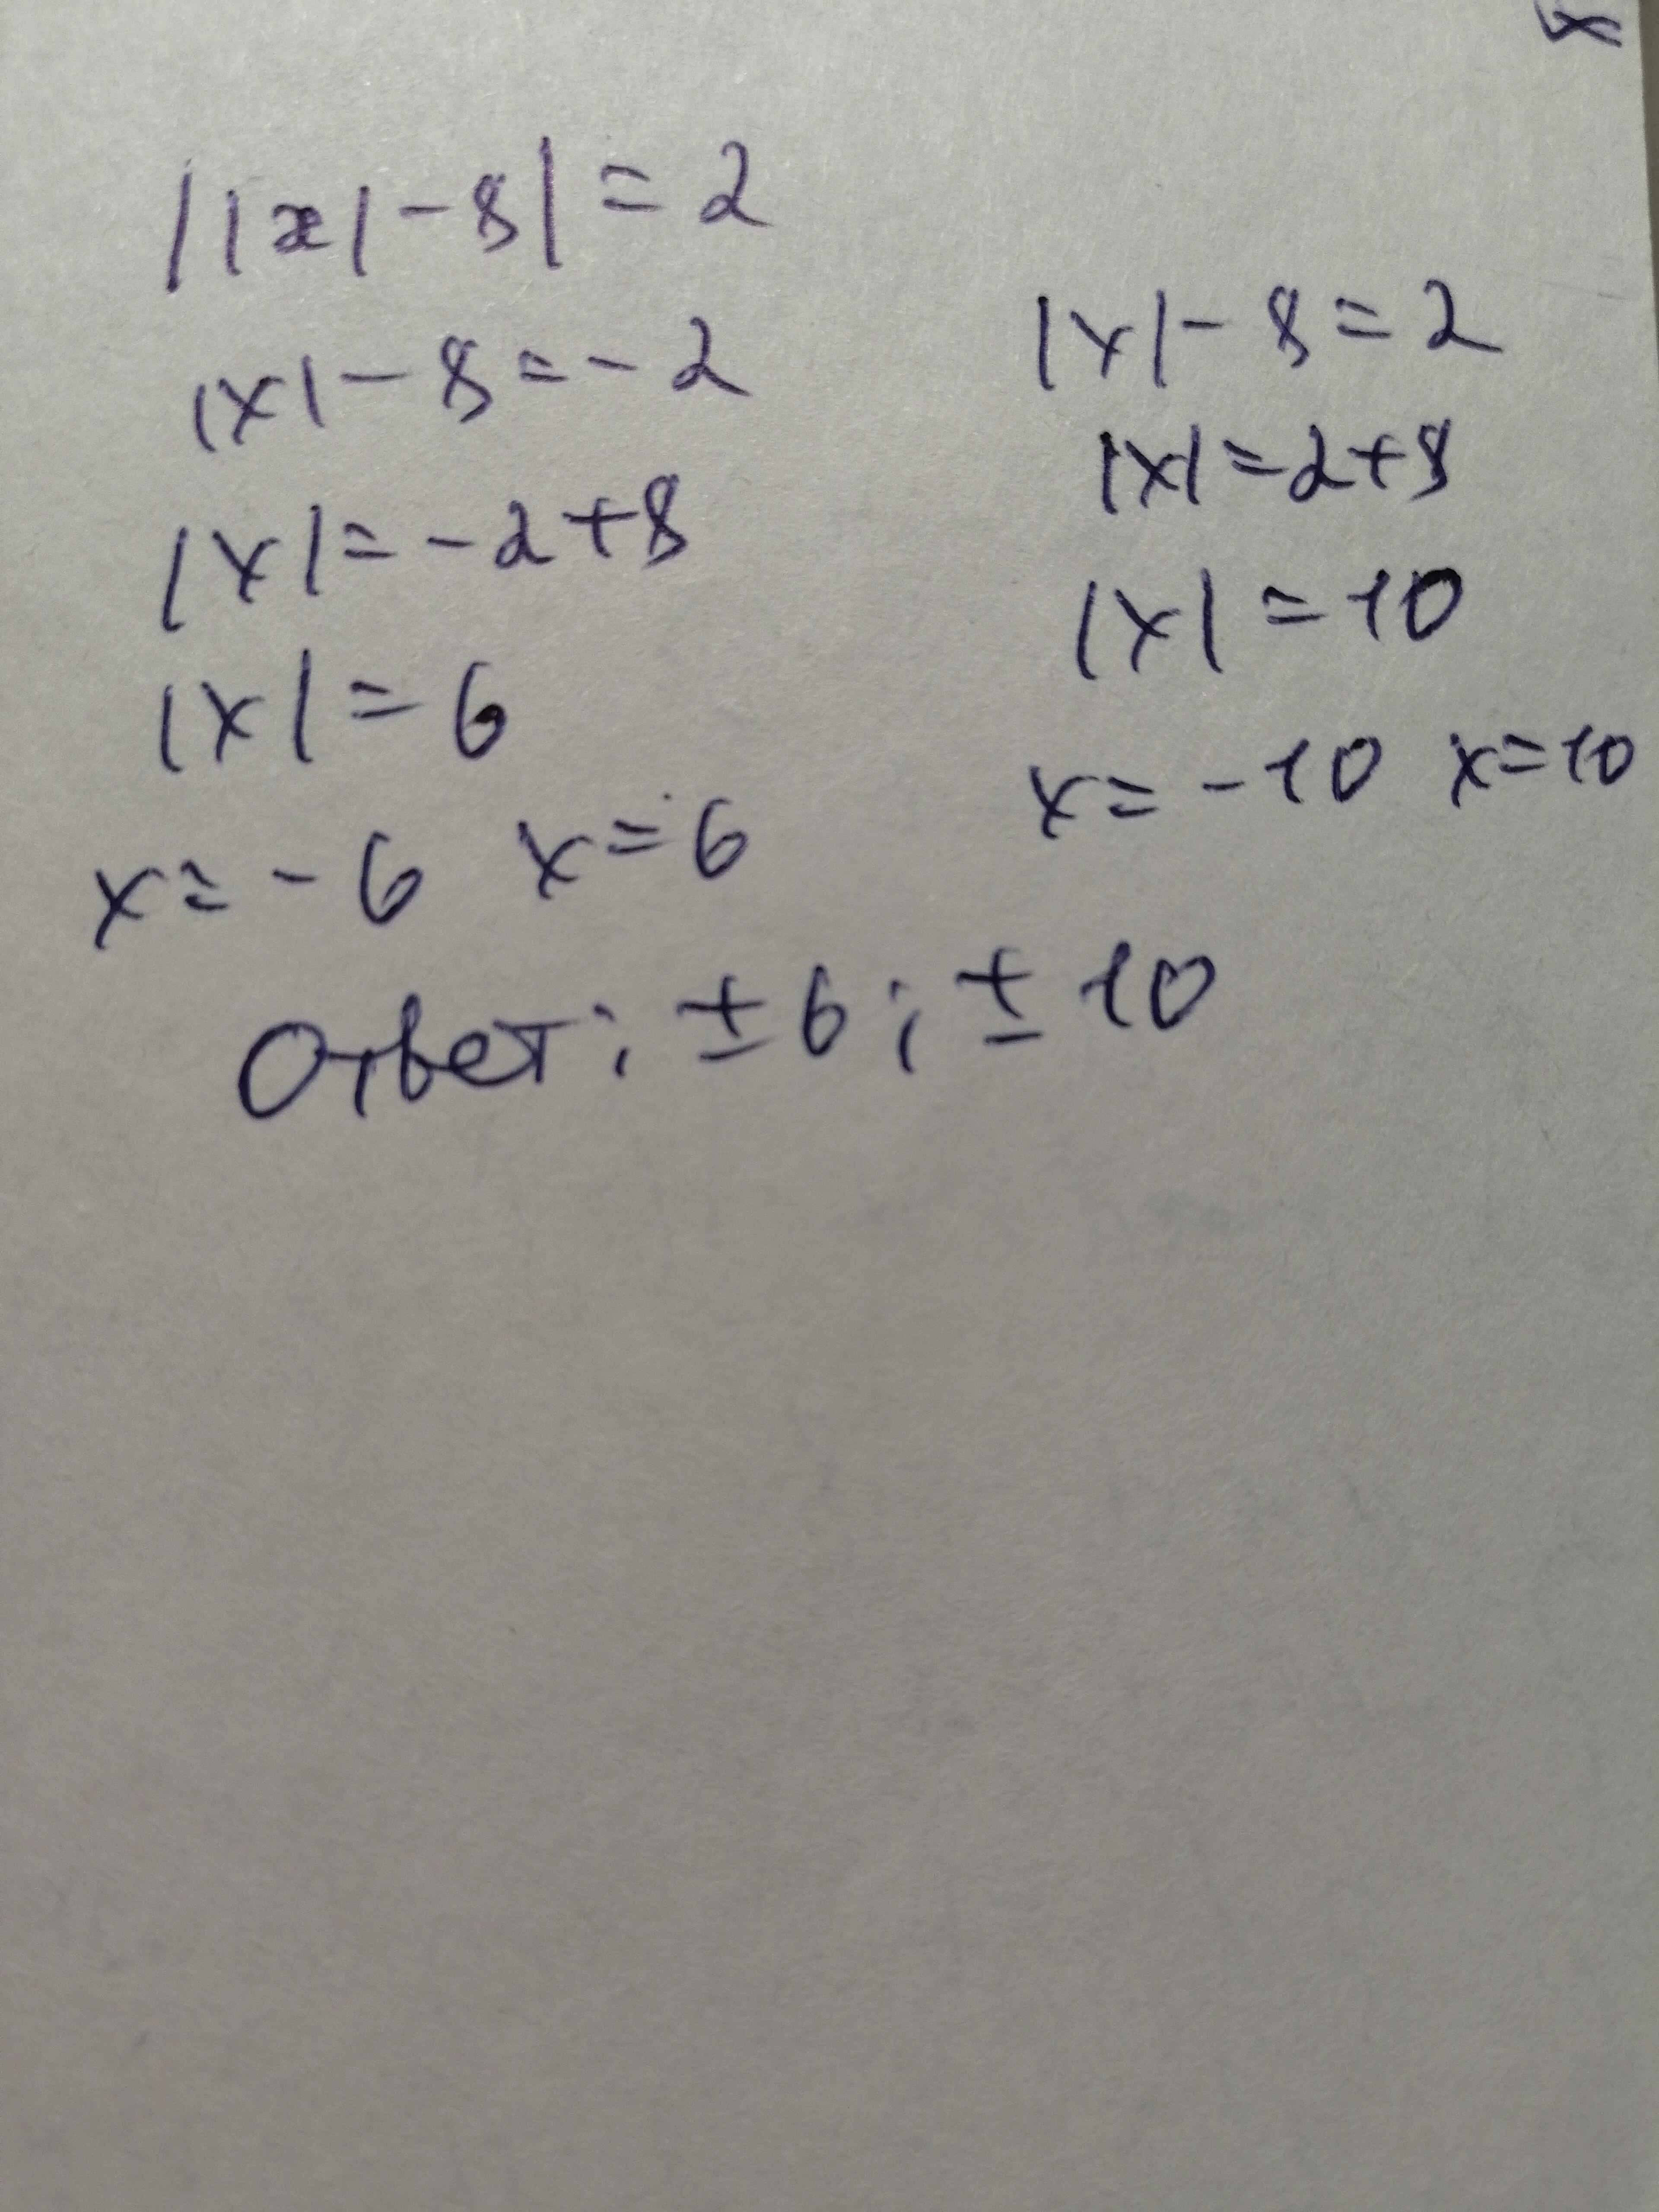 ||x|-8|=2
|x|-8=-2
|x|=-2+8
|x|=6
x=-6 x=6
|x|-8=2
|x|=2+8
|x|=10
x=-10 x=10
Ответ: ±6; ±10